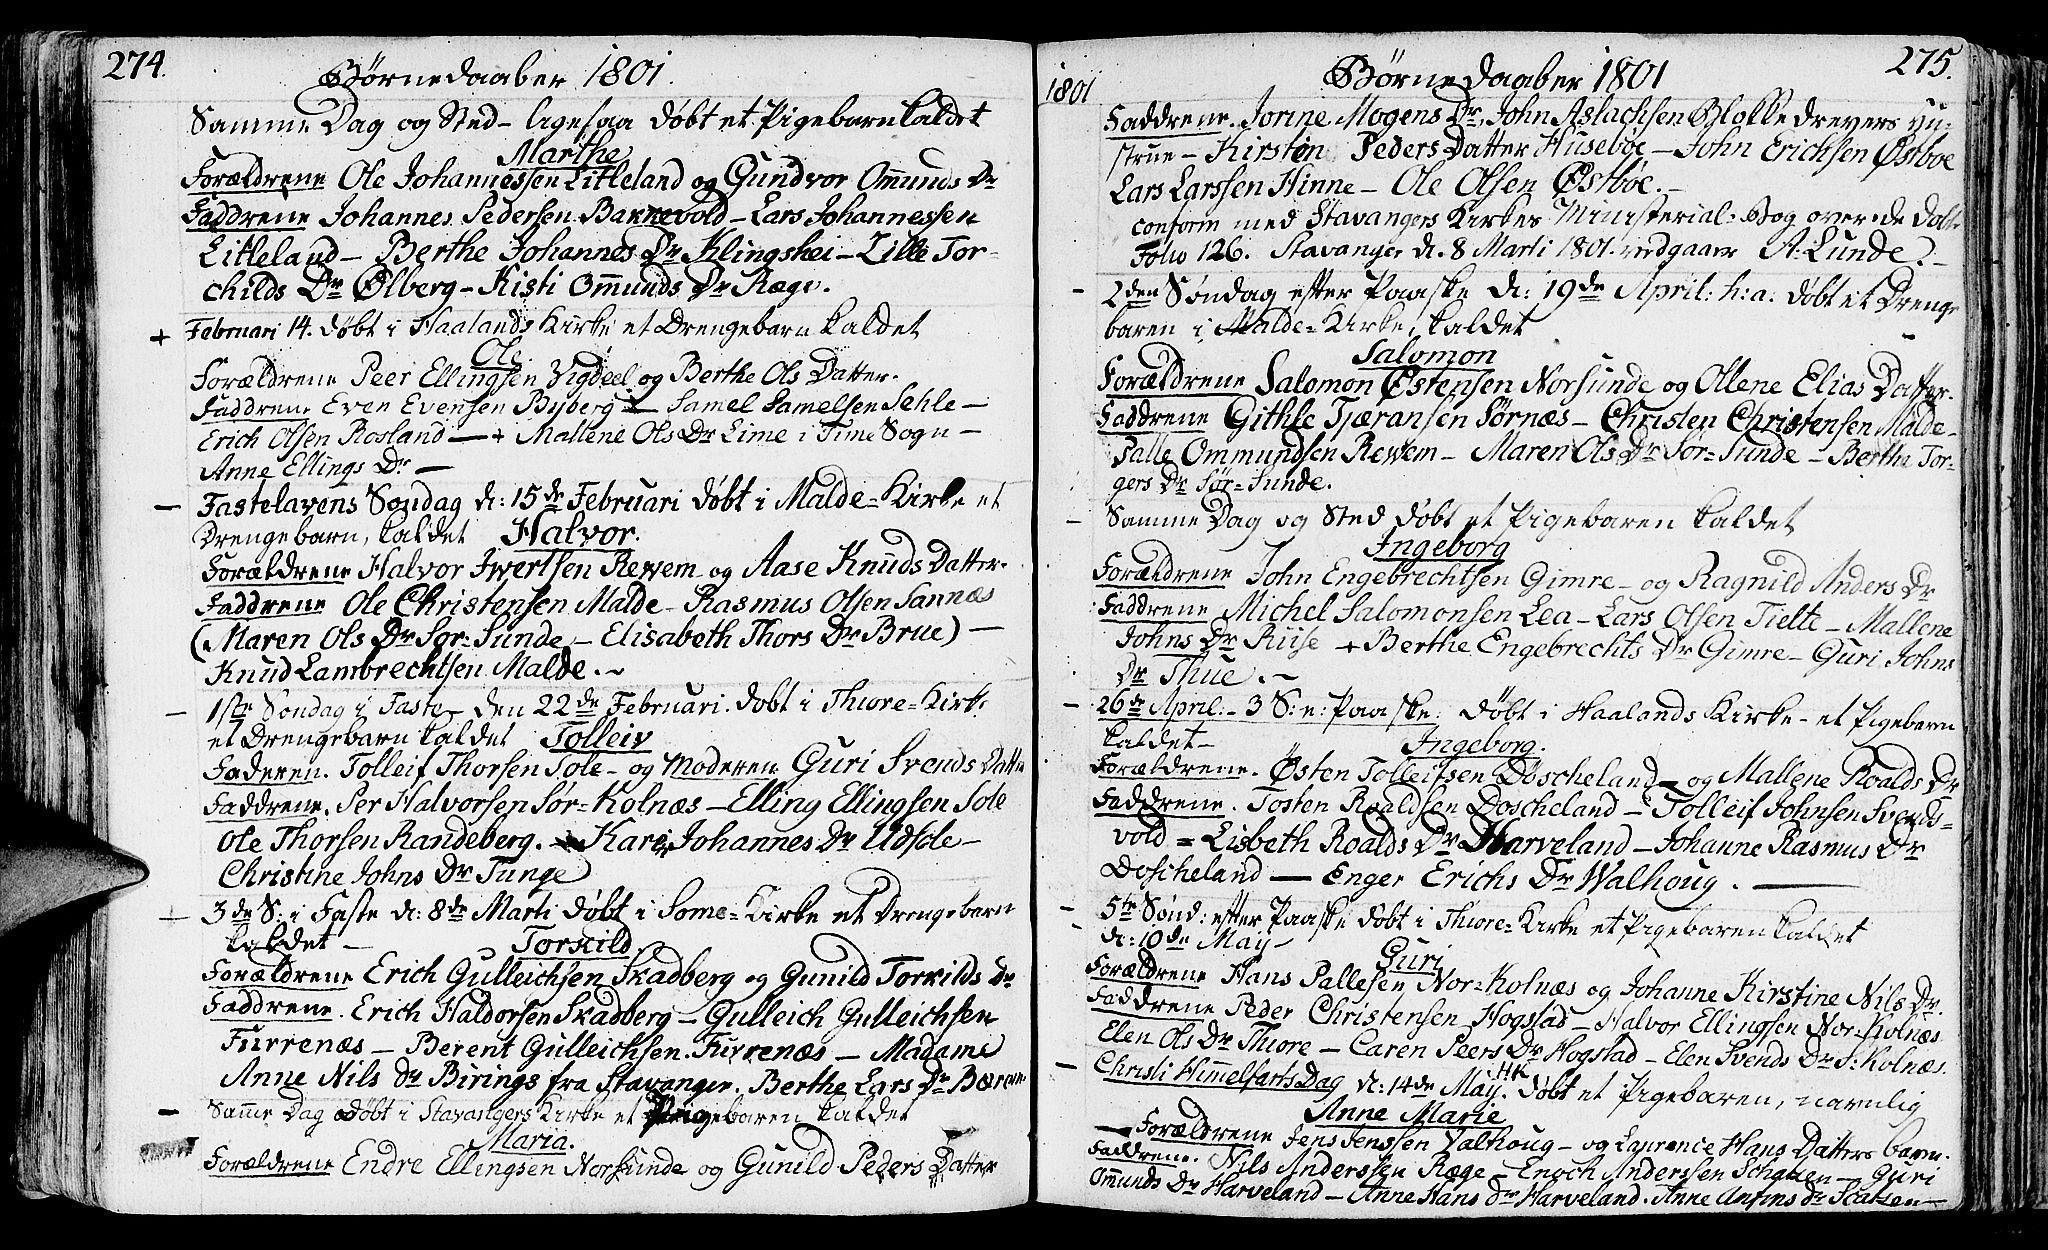 274.
Børnedaaber 1801.
Samme Dag og Sted - ligesaa døbt et Pigebarn kaldet
Marthe
Forældrene Ole Johannessen Litleland og Gundvor Omunds Dr
Faddrene Johannes Pedersen Barnevold - Lars Johannessen
Litleland - Berthe Johannes Dr Klingshei - Lille Tor-
childs Dr Ølberg - Kisti Omunds Dr Ræge.
+ Februari 14. døbt i Haalands Kirke et Drengebarn kaldet
Ole
Forældrene Peer Ellingsen Vigdeel og Berthe Ols Datter.
Faddrene Even Evensen Byberg - Samel Samelsen Sehle -
Erich Olsen Rosland - + Mallene Ols Dr Lime i Time Sogn -
Anne Ellings Dr -
- Fastelavens Søndag d: 15de Februari døbt i Malde-Kirke et
Drengebarn, kaldet Halvor.
Forældrene Halvor Iwertsen Rewem - og Aase Knuds Datter.
Faddrene Ole Christensen Malde - Rasmus Olsen Sannæs
(Maren Ols Dr Sør-Sunde - Elisabeth Thors Dr Brue) -
Knud Lambrechtsen Malde. -
- 1ste Søndag i Faste - den 22de Februari. døbt i Thiore-Kirk.
et Drengebarn kaldet Tolleiv
Faderen. Tolleif Thorsen Sole - og Moderen Guri Svends Datte
Faddrene. Per Halvorsen Sør-Kolnæs - Elling Ellingsen Sole
Ole Thorsen Randeberg. Kari Johannes Dr Udsole -
Christine Johns Dr Tunge
+ 3de S: i Faste d: 8de Marti døbt i Some-Kirke et Drengebarn
kaldet -
Torkild
Forældrene Erich Gulleichsen Skadberg og Gunild Torkilds Dr
Faddrene. Erich Haldorsen Skadberg - Gulleich Gulleichsen
Furrenæs - Berent Gulleichsen Furrenæs - Madame
Anne Nils Dr Birings fra Stavanger. Berthe Lars Dr
- Samme Dag døbt i Stavangers Kirke et Pigebaren kaldet
Maria.
Forældrene Endre Ellingsen Norsunde og Gunild Peders Datter
275.
1801
Børnedaaber 1801
Faddrene. Jorine Mogens Dr, John Aslachsen Blokkedrevers hu-
strue - Kirsten Peders Datter Husebøe - John Erichsen Østbøe
Lars Larssen Hinne - Ole Olsen Østbøe. -
conform med Stavangers Kirkes Ministerial-Bog over de døbte
Folio 126. Stavanger d. 8 Marti 1801. vedgaaer A: Lunde. -
- 2den Søndag efter Paaske d: 19de April: h: a: døbt et Drenge
baren i Malde-Kirke, kaldet
Salomon
Forældrene Salomon Østensen Norsunde og Ollene Elias Datter.
Faddrene Githle Tjæransen Sørnæs - Christen Christensen Malde -
Salle Ommundsen Rewem - Maren Ols Dr Sør-Sunde - Berthe Tor-
gers Dr Sør-Sunde.
- Samme Dag og Sted døbt et Pigebaren kaldet
Ingeborg
Forældrene John Engebrechtsen Gimre - og Ragnild Anders Dr
Faddrene Michel Salomonsen Lea - Lars Olsen Tielte - Mallene
Johns Dr Ruse + Berthe Engebrechts Dr Gimre - Guri Johns
Dr Thue. -
- 26de April: - 3 S: e: Paaske: døbt i Haalands Kirke - et Pigebarn
kaldet -
Ingeborg.
Forældrene. Østen Tolleifsen Doscheland - og Mallene Roalds Dr
Faddrene. Tosten Roaldsen Doscheland - Tolleif Johnsen Svends-
vold = Lisbeth Roalds Dr Harveland - Johanne Rasmus Dr
Doscheland - Enger Erichs Dr Walhoug. -
- 5te Sønd: efter Paaske døbt i Thiore-Kirke et Pigebaren kaldet
d: 10de May -
Guri
Forældrene Hans Pallesen Nor-Kolnæs og Johanne Kirstine Nils Dr.
Faddrene Peder Christensen Hogstad - Halvor Ellingsen Nor-Kolnæs
Elen Ols Dr Thiore - Caren Peers Dr Hogstad - Elen Svends Dr S: Kolnæs.
- Christi Himmelfarts Dag d: 14de May. HK døbt et Pigebaren, navnlig
Anne Marie
- Forældrene Jens Jenssen Valhoug - og Laurence Hans Datters barn.
Faddrene. Nils Anderssen Ræge - Enoch Anderssen - Guri
Omunds Dr Harveland - Anne Hans Dr Harveland. Anne Dr